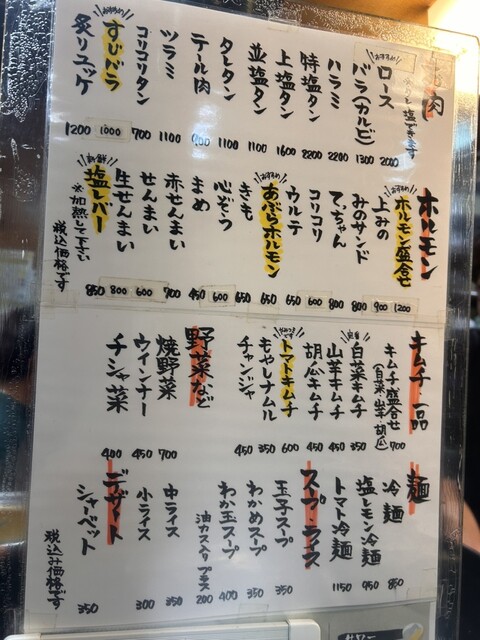 肉
と塩できます
おすすめ
ロース 2000
バラ(カルビ) 1300
ハラミ 2200
特塩タン 2200
上塩タン 1600
並塩タン 1100
タレタン 1100
テール肉
ツラミ 1100
コリコリタン 700
おすすめ
すじバラ 1000
炙りユッケ 1200
ホルモン
おすすめ
ホルモン盛合せ 1200
上みの 900
みのサンド 800
てっちゃん 800
コリコリ 600
ウルテ 650
おすすめ
あぶらホルモン 650
きも 650
心ぞう 600
まめ 450
赤せんまい 700
せんまい 600
生せんまい 800
新鮮
塩レバー 850
※加熱して下さい
税込価格です
キムチ・一品
キムチ盛合せ 700
(白菜・山芋・胡瓜)
白菜キムチ 350
山芋キムチ 450
胡瓜キムチ 450
トマトキムチ 600
もやしナムル 350
チャンジャ 450
野菜など
焼野菜 700
ウインナー 450
チシャ菜 400
麺
冷麺 850
塩レモン冷麺 950
トマト冷麺 1150
スープ・ライス
玉子スープ 350
わかめスープ 350
わか玉スープ 400
油カス入りプラス 200
中ライス 350
小ライス 300
デザート
シャーベット 350
税込み価格です